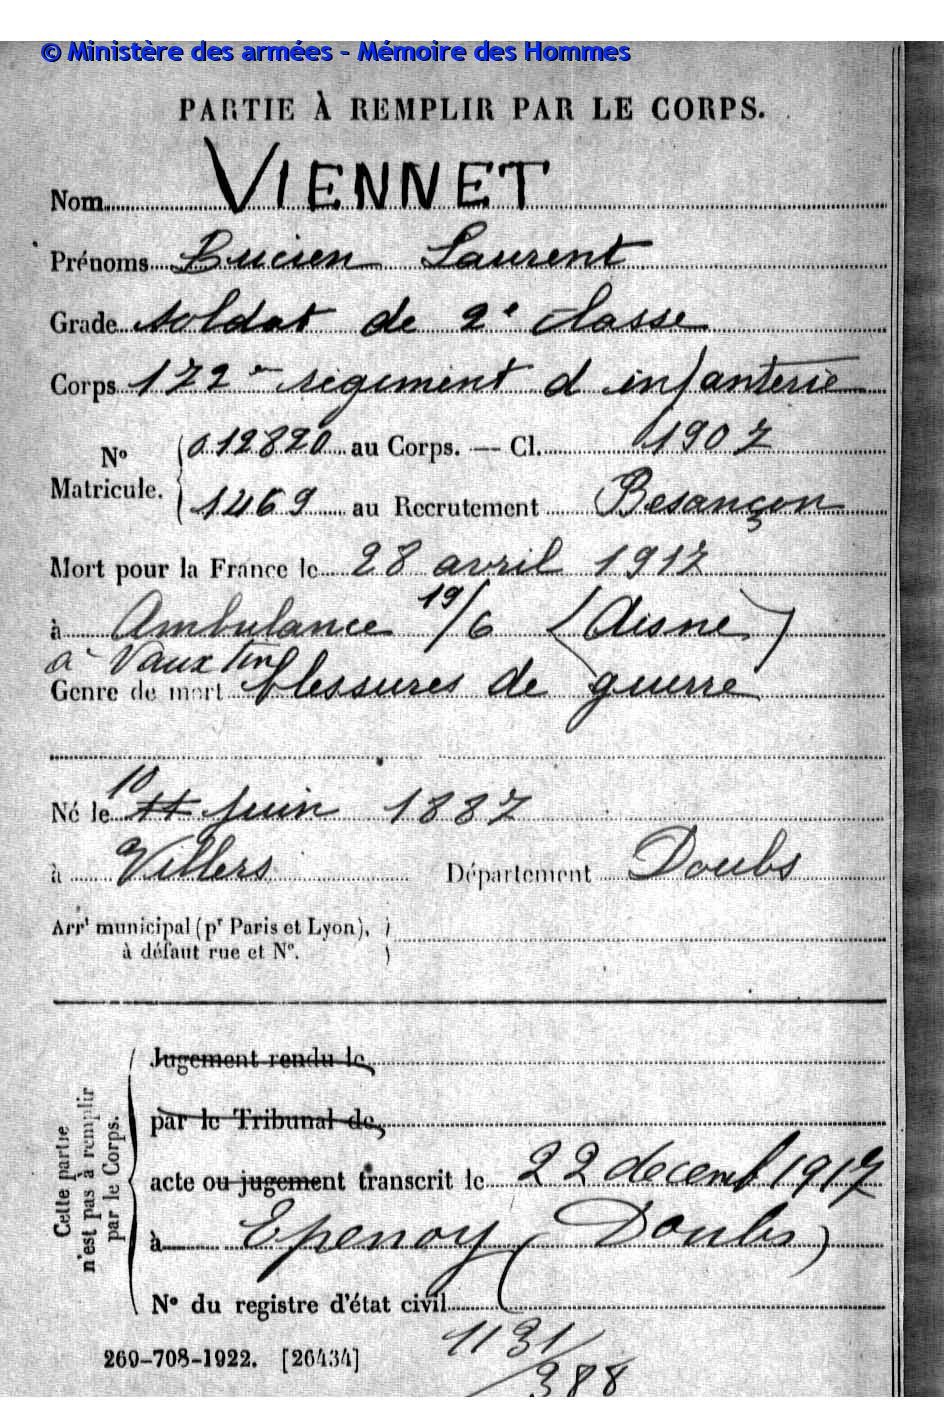 © Ministère des armées - Mémoire des Hommes
PARTIE À REMPLIR PAR LE CORPS.
Nom VIENNET
Prénoms Lucien Laurent
Grade soldat de 2e classe
Corps 172me régiment d infanterie
No Matricule. 012820 au Corps. — Cl. 1907
1469 au Recrutement Besançon
Mort pour la France le 28 avril 1917
à Ambulance 19/6 (Aisne)
à Vauxtin
Genre de mort blessures de guerre
10
Né le 11 Juin 1887
à Villers Département Doubs
Arrt municipal (pr Paris et Lyon),
à défaut rue et No.
Cette partie
n'est pas à remplir
par le Corps.
Jugement rendu le,
par le Tribunal de,
acte ou jugement transcrit le 22 decemb 1917
à Epenoy (Doubs)
No du registre d'état civil
1131/388
260-708-1922. [26434]